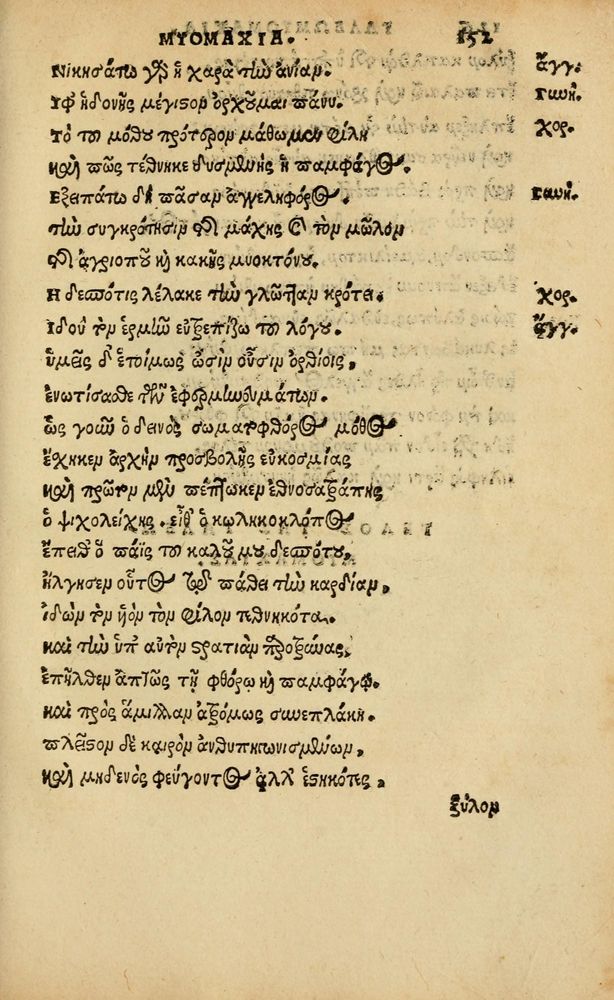 ΜΥΟΜΑΧΙΑ. 152
Νικησάτω γὰρ ἡ χαρὰ τὴν ἀνίαν. ἄγγ.
Ὑφ' ἡδονῆς μέγιστον ὀρχοῦμαι πάνυ. γυνή.
Τὸ τοῦ μόθου πρότερον μάθωμεν φίλη χορ.
καὶ πῶς τέθνηκε δυσμενὴς ὁ παμφάγος.
Εξειπάτω δὴ πᾶσαν ἀγγεληφόρος. γυνή.
τὴν συγκρότησιν τῆς μάχης καὶ τὸν μῶλον
τοῦ ἀγριοποῦ καὶ κακῆς μυοκτόνου.
Η δεσπότις λέλακε τὴν γλῶτταν κρότει. χορ.
Ιδοὺ τὸν εἱρμὸν εὐτρεπίζω τοῦ λόγου. ἄγγ.
ὑμεῖς δ' ἑτοίμως ὠσὶν οὖσιν ὀρθίοις,
ἐνωτίσασθε τῶν ἐφερμηνευμάτων.
ὡς γοῦν ὁ δεινὸς σωματοφθόρος μόθος
ἔσχηκεν ἀρχὴν προσβολῆς εὐκοσμίας
καὶ πρῶτον μὲν πέπτωκεν ἐθνοσατράπης
ὁ ψιχολείχης, εἶθ' ὁ κωληκοκλόπος
ἔπειθ' ὁ παῖς τοῦ καλοῦ μου δεσπότου,
ἤλγησεν οὗτος τῷ πάθει τὴν καρδίαν,
ἰδὼν τὸν υἱὸν τὸν φίλον τεθνηκότα.
καὶ τὴν ὑπ' αὐτὸν στρατιὰν προτξάνας,
ἐπῆλθεν ἀπτῶς τῇ φθόρῳ καὶ παμφάγῳ.
καὶ πρὸς ἅμιλλαν ἀτρόμως συνεπλάκη.
πλεῖστον δὲ καιρὸν ἀνθυπηγωνισμένων,
καὶ μηδενὸς φεύγοντος ἀλλ' ἑστηκότες,
ξύλον